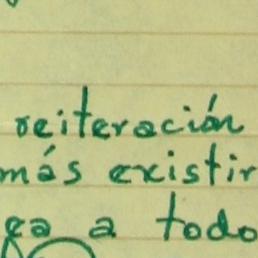 reiteración
más existir
ga a todo